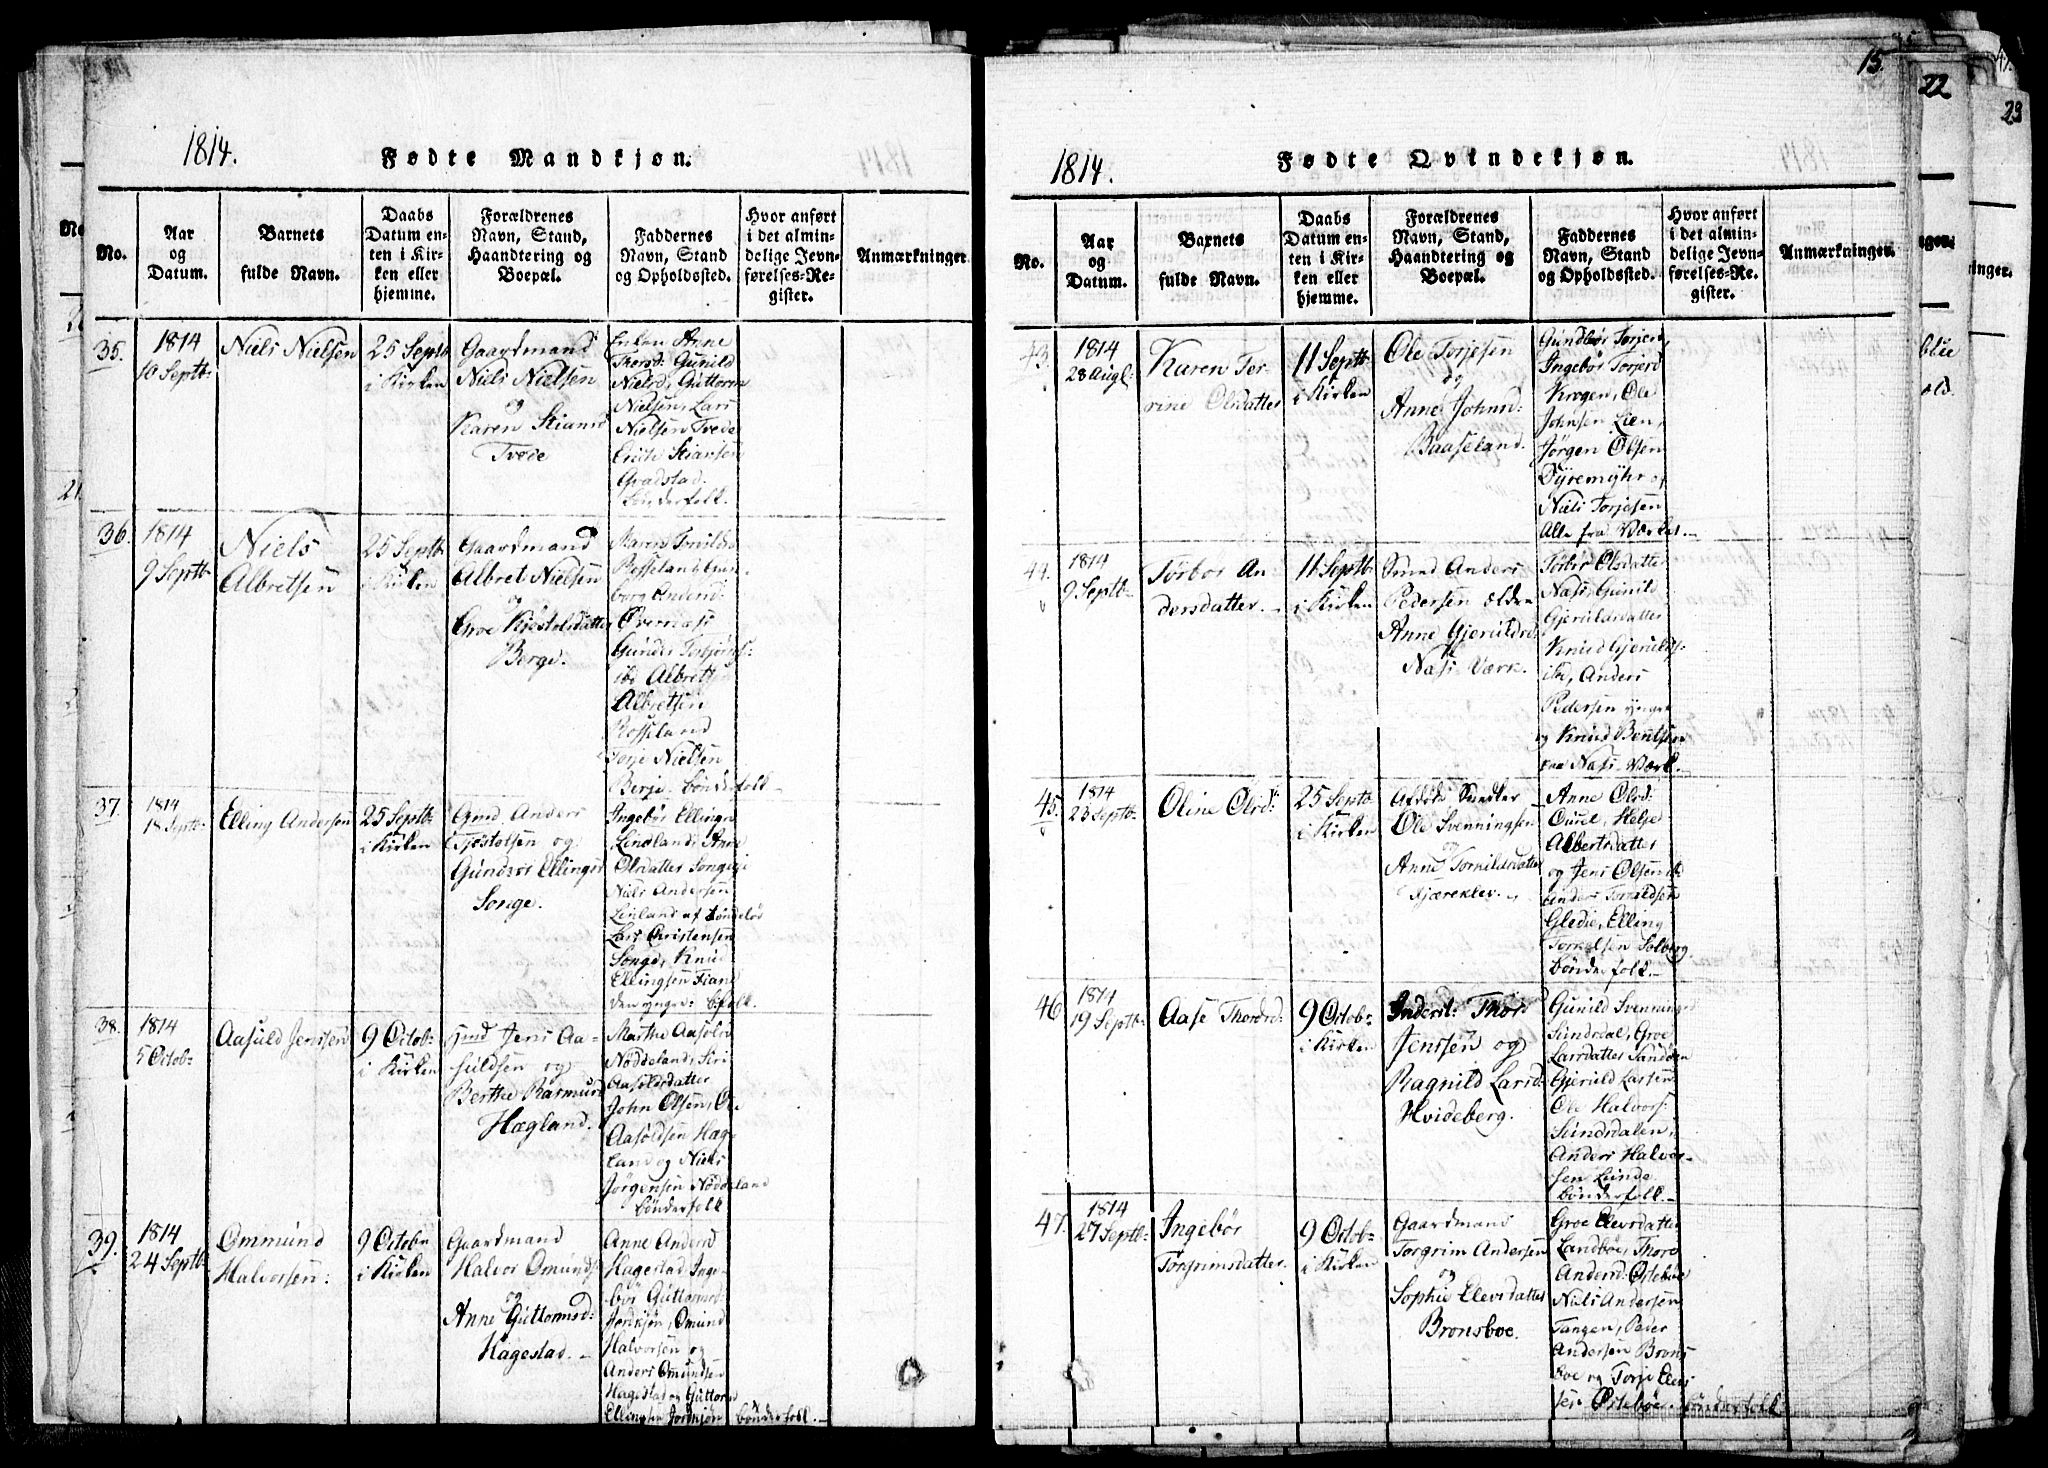 1814.
Fødte Mandkjøn.
No.
Aar
og
Datum.
Barnets
fulde Navn.
Daabs
Datum en-
ten i Kir-
ken eller
hjemme.
Forældrenes
Navn, Stand,
Haandtering og
Boepæl.
Faddernes
Navn, Stand
og Opholdssted.
Hvor anført
i det almin-
delige Jevn-
førelses-Re-
gister.
Anmærkninger.
35.
1814
10 Septb:
Niels Nielsen
25 Septb
i Kirken
Gaardmand
Niels Nielsen
og
Karen Stiansd
Tvede
Enken Anne
Thorsd: Gunild
Nielsd, Guttorm
Nielsen, Lars
Nielsen Tvede
Erich Stiansen
Gradstad.
bønderfolk.
36.
1814
9 Septb
Niels
Albretsen
25 Septb
i Kirken
Gaardmand
Albret Nielsen
og
Groe Kjøstolsdatter
Berge.
Maren Torvilds
Rosseland
borg Andersd:
Gunder
ibd Albret
Albretsen
Rosseland
Torje Nielsen
Berje. bønderfolk
37
1814
18 Septb:
Elling Andersen
25 Septb:
i Kirken
Gmd Anders
Tjøstolsen og
Gundbor Ellingsd
Songe.
Ingebor Ellingsd
Lindland, Anne
Olsdatter Songe
Niels Andersen
Linland af Søndeløv
Lars Christensen
Songe, Knud
Ellingsen
den yngre: bfolk.
38.
1814
5 Octob:
Aasuld Jenssen
9 Octob:
i Kirken
Gmd Jens Aa-
suldsen og
Berthe Rasmusd
Hægland.
Marthe Aasolsd
Nøddeland, Siri
Aasoldsdatter
John Olsen, Ole
Aasoldsen Hæg-
land og Niels
Jørgensen Nøddeland
bønderfolk
39.
1814
24 Septb:
Ommund
Halvorsen:
9 Octob:
i Kirken
Gaardmand
Halvor Omunds
og
Anne Guttormsd:
Hagestad.
Anne Andersd
Hagestad Inge-
bør Guttormsd
Omund
Halvorsen og
Anders Omundsen
Hagestad og Guttorm
Ellingsen bønderfolk.
15.
22
23
1814.
Fødte Qvindekjøn.
No.
Aar
og
Datum.
Barnets
fulde Navn.
Daabs
Datum en-
ten i Kir-
ken eller
hjemme.
Forældrenes
Navn, Stand,
Haandtering og
Boepæl.
Faddernes
Navn, Stand
og Opholdssted.
Hvor anført
i det almin-
delige Jevn-
førelses-Re-
gister.
Anmærkninger.
43.
1814
28 Augl:
Karen Tor-
rine Olsdatter
11 Septb:
i Kirken
Ole Torjesen
og
Anne Johnsd:
Baaseland.
Gundbør Torjers,
Ingebør Torjersd
Krogen, Ole
Johnsen Lien,
Jørgen Olsen
Tyremyhr og
Niels Torjesen
Alle fra Værket.
44.
1814
9 Septb:
Tørbor An-
dersdatter.
11 Septb:
i Kirken
Smed Anders
Pedersen ældre
Anne Gjeruldsd:
Næs Værk.
Tørbør Olsdatter
Næs, Gunild
Gjeruldsdatter
Knud Gjerulds:
ibd, Anders
Pedersen yngre
og Knud Bentsen
fra Næs Værk.
45.
1814
23 Septb:
Oline Olsd:
25 Septb
i Kirken
Afdøde Snedker
Ole Svenningsen
og
Anne Torkildsdatter
Kjæreklev.
Anne Olsd:
Albertsdatter
og Jens Olsen
Anders Torkildsen
Gledie, Elling
Torkelsen Solberg
bønderfolk
46
1814
19 Septb:
Aase Thordsd:
9 Octob:
i Kirken
Inderst: Thor
Jenssen og
Ragnild Larsd:
Hvideberg.
Gunild Svennings
Sundsdal, Groe
Larsdatter Sandøen
Gjeruld Larsen
Ole Halvors:
Sundsdalen,
Anders Halvor-
sen Lunde
bønderfolk.
47.
1814
27 Septb:
Ingebør
Torgrimsdatter.
9 Octob:
i Kirken
Gaardmand
Torgrim Andersen
og
Sophie Elevsdatter
Bronsboe.
Groe Elevsdatter
Landbøe, Thore
Andersd: Østebøe
Niels Andersen
Tangen, Peder
Andersen Brons
boe og Torje Elevs
sen Østebøe. bønderfolk